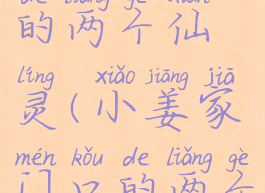 de liǎng gè xiān
的两个仙
líng xiǎo jiāng jiā
灵(小姜家
mén kǒu de liǎng gè
门口的两个